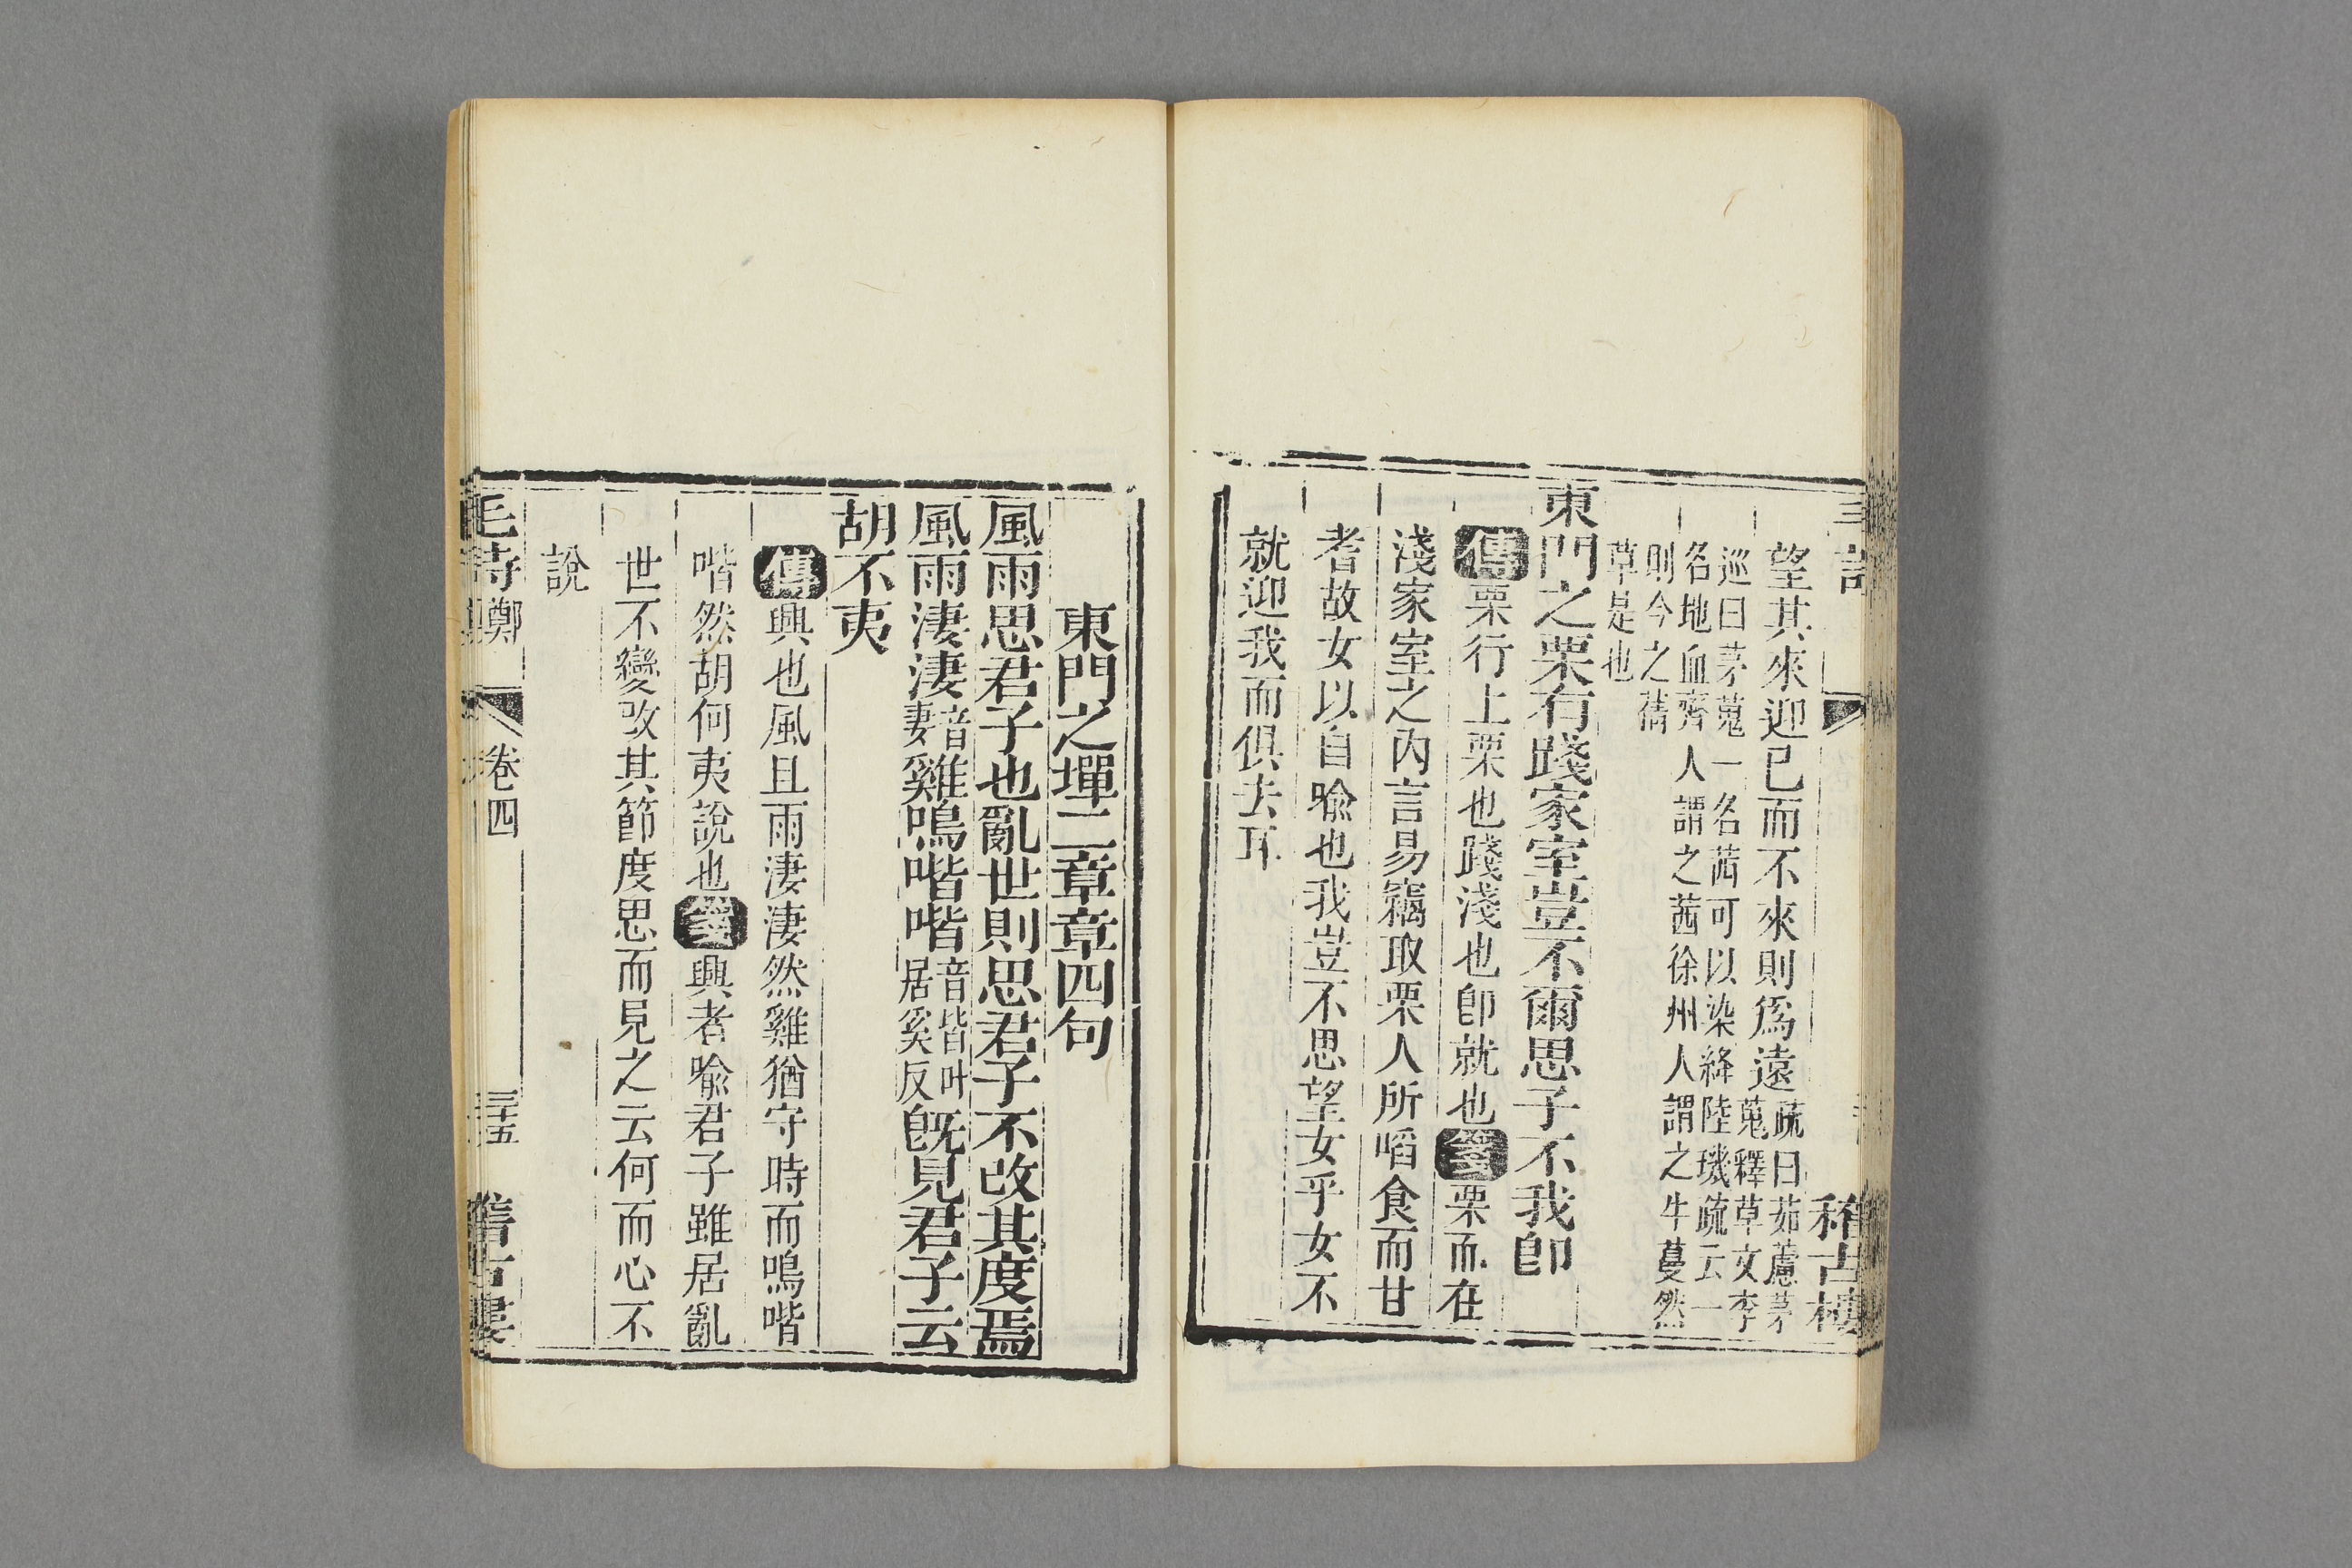 望其來迎已而不來則爲遠疏曰茹藘茅
蒐釋草文李
巡曰茅蒐一名茜可以染絳陸璣疏云一
名地血齊人謂之茜徐州人謂之牛蔓然
則今之蒨
草是也
東門之栗有踐家室豈不爾思子不我卽
傳栗行上栗也踐淺也卽就也箋栗而在
淺家室之內言易竊取栗人所啗食而甘
耆故女以自喩也我豈不思望女乎女不
就迎我而俱去耳
稽古樓
東門之墠二章章四句
風雨思君子也亂世則思君子不改其度焉
風雨淒淒音
妻雞鳴喈喈音皆叶
居奚反旣見君子云
胡不夷
傳興也風且雨淒淒然雞猶守時而鳴喈
喈然胡何夷說也箋興者喩君子雖居亂
世不變改其節度思而見之云何而心不
說
毛詩 鄭 卷四 三十五